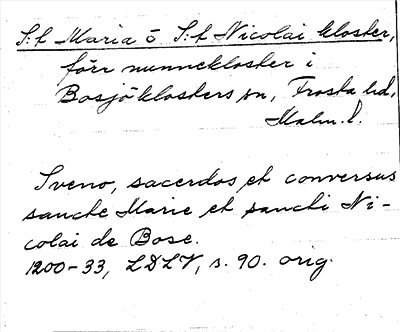 S:t Maria o S:t Nicolai kloster,
förr nunnekloster i
Bosjöklosters sn, Frosta hd,
Malm. l.
Sveno, sacerdos et conversus
sancte Marie et sancti Ni-
colai de Bose.
1200-33, LDLV, s. 90. orig.